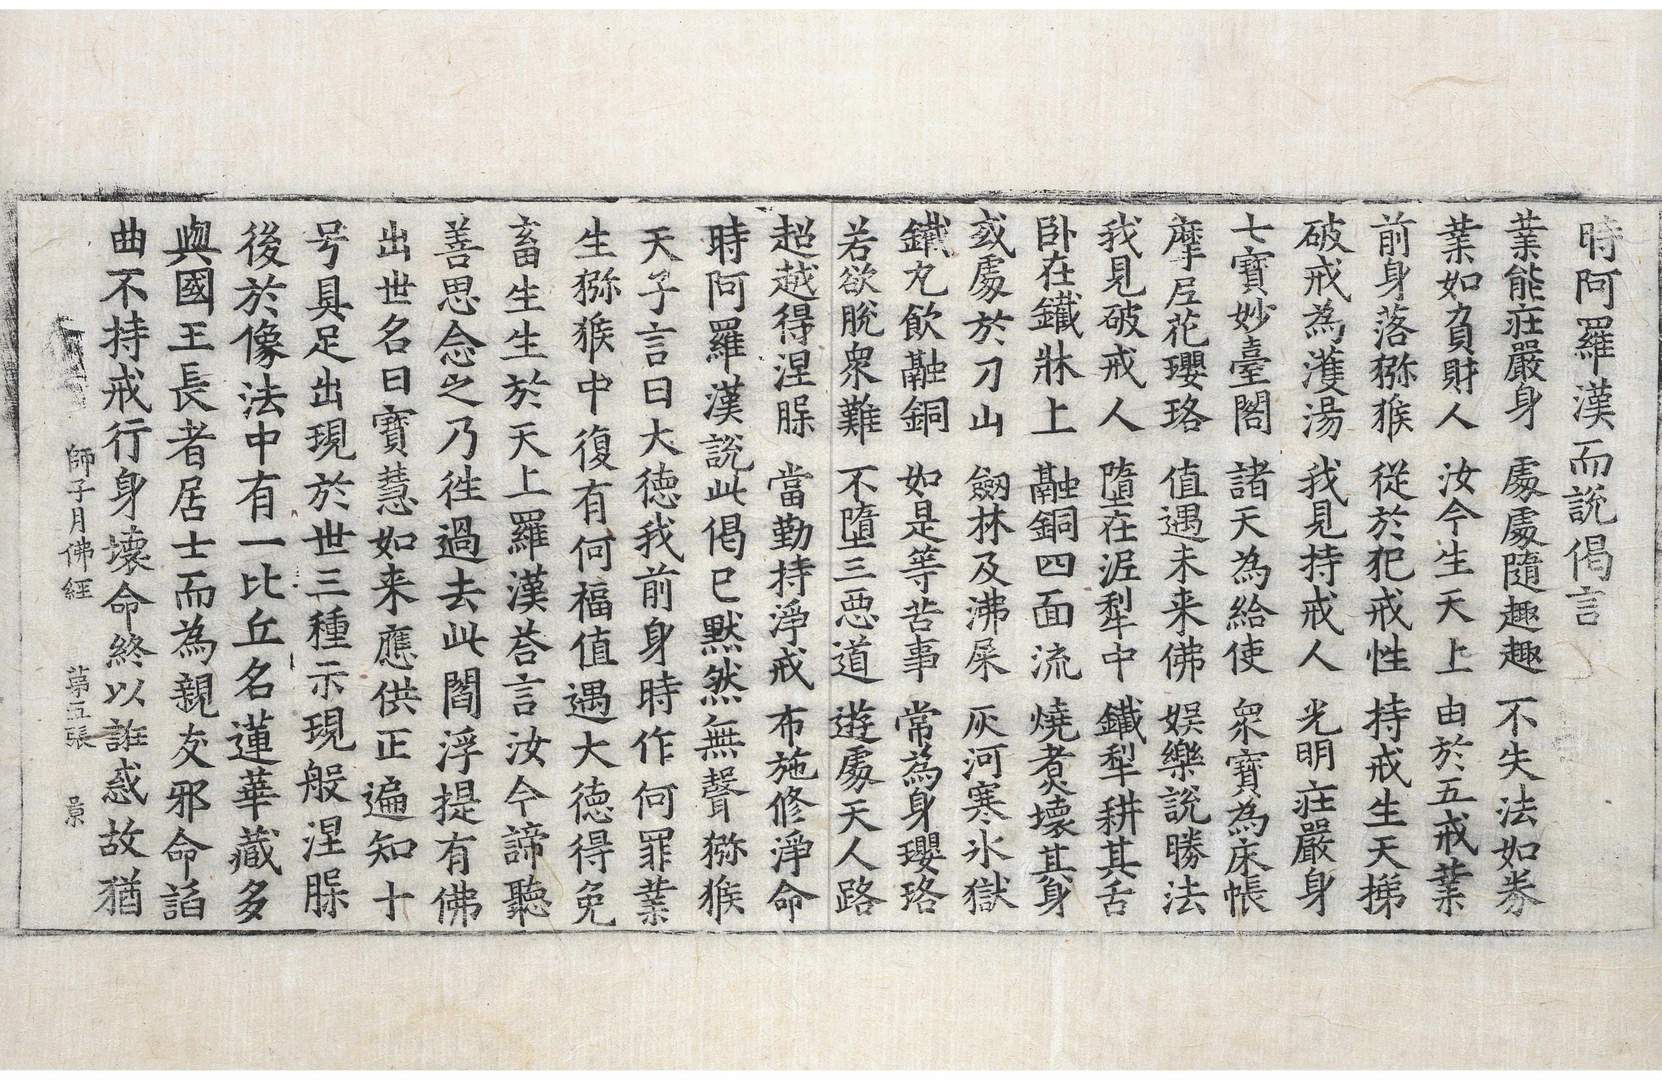 時阿羅漢而說偈言
業能莊嚴身　處處隨趣趣　不失法如券
業如負財人　汝今生天上　由於五戒業
前身落猕猴　從於犯戒性　持戒生天梯
破戒為濩湯　我見持戒人　光明莊嚴身
七寶妙臺閣　諸天為給使　衆寶為床帳
摩尼花瓔珞　值遇未来佛　娛樂說勝法
我見破戒人　墮在泥犁中　鐵犁耕其舌
卧在鐵牀上　融銅四面流　燒煮壞其身
或處於刀山　劒林及沸屎　灰河寒氷獄
鐵丸飲融銅　如是等苦事　常為身瓔珞
若欲脫衆難　不墮三惡道　遊處天人路
超越得涅槃　當勤持淨戒　布施修淨命
時阿羅漢說此偈已默然無聲猕猴
天子言曰大德我前身時作何罪業
生猕猴中復有何福值遇大德得免
畜生生於天上羅漢荅言汝今諦聽
善思念之乃徃過去此閻浮提有佛
出世名曰寶慧如来應供正遍知十
号具足出現於世三種示現般涅槃
後於像法中有一比丘名蓮華藏多
與國王長者居士而為親友邪命謟
曲不持戒行身壞命終以誑惑故猶
師子月佛經　苐五張　景